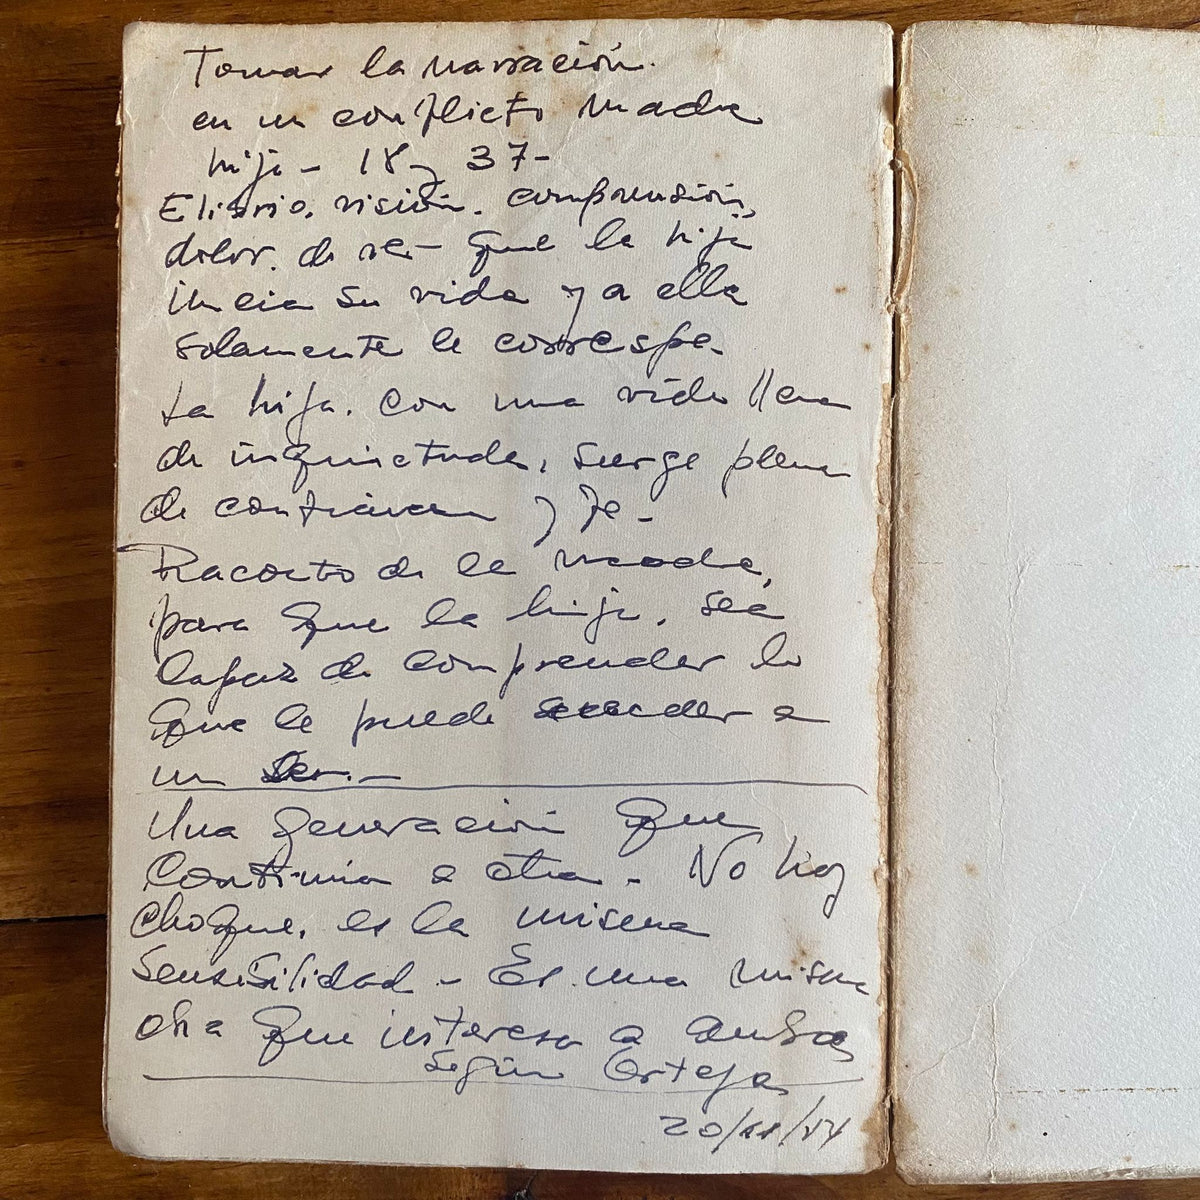 Tomar la narración.
en un conflicto madre
hija - 18 y 37-
visión. comprensión,
dolor. de ver- que la hija
inicia su vida y a ella
solamente le
La hija. con una vida llena
de inquietudes, surge plena
de confianza y fe-
Raconto de la madre,
para que la hija, sea
capaz de comprender lo
que le puede suceder a
un ser.-
Una generación que
continúa a otra. No hay
choque, es la misma
sensibilidad - Es una misma
obra que interesa a ambas
según Ortega
20/11/54